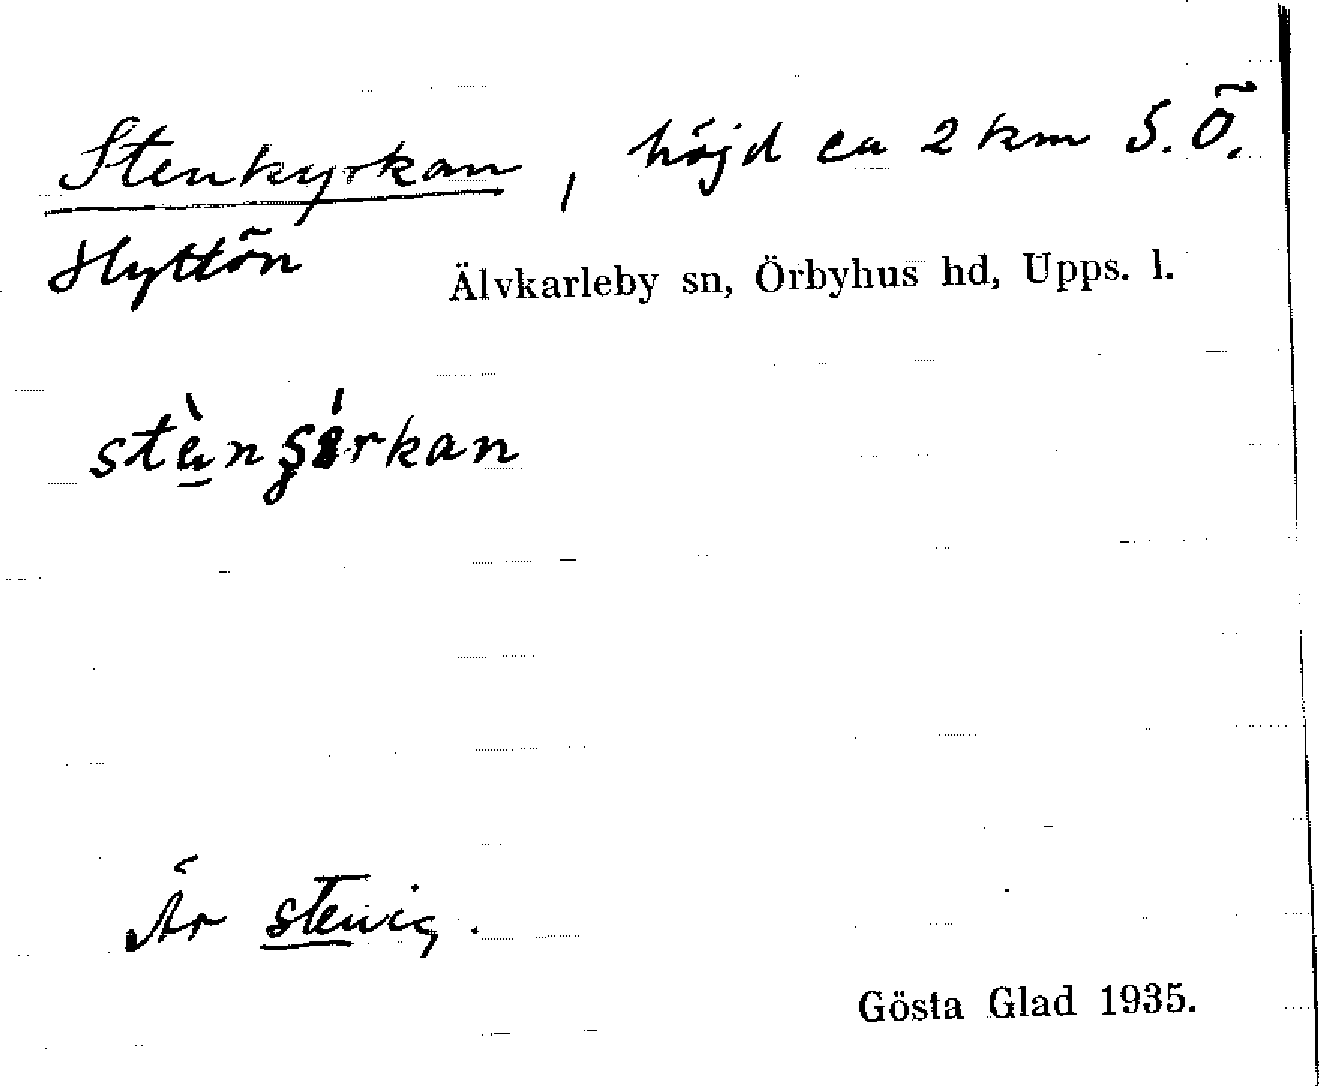 Stenkyrkan, höjd ca 2 km S.Ö.
Hyttön
Älvkarleby sn, Örbyhus hd, Upps. l.
Är stenig.
Gösta Glad 1935.